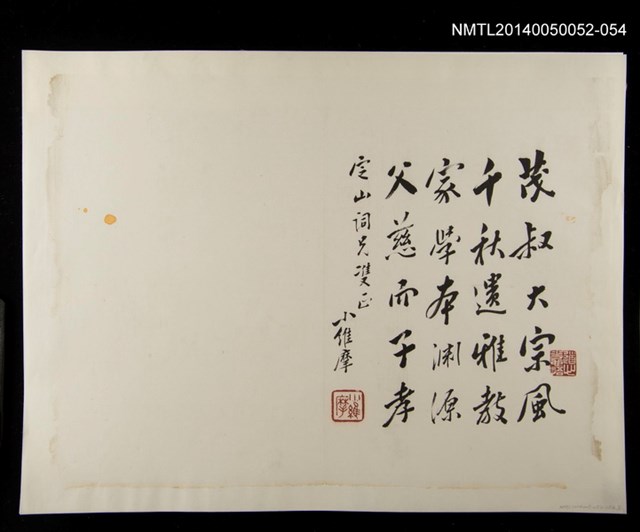 NMTL20140050052-054
茂叔大宗風
千秋遺雅教
家學本淵源
父慈而子孝
定山詞兄雙正
小維摩
小維摩